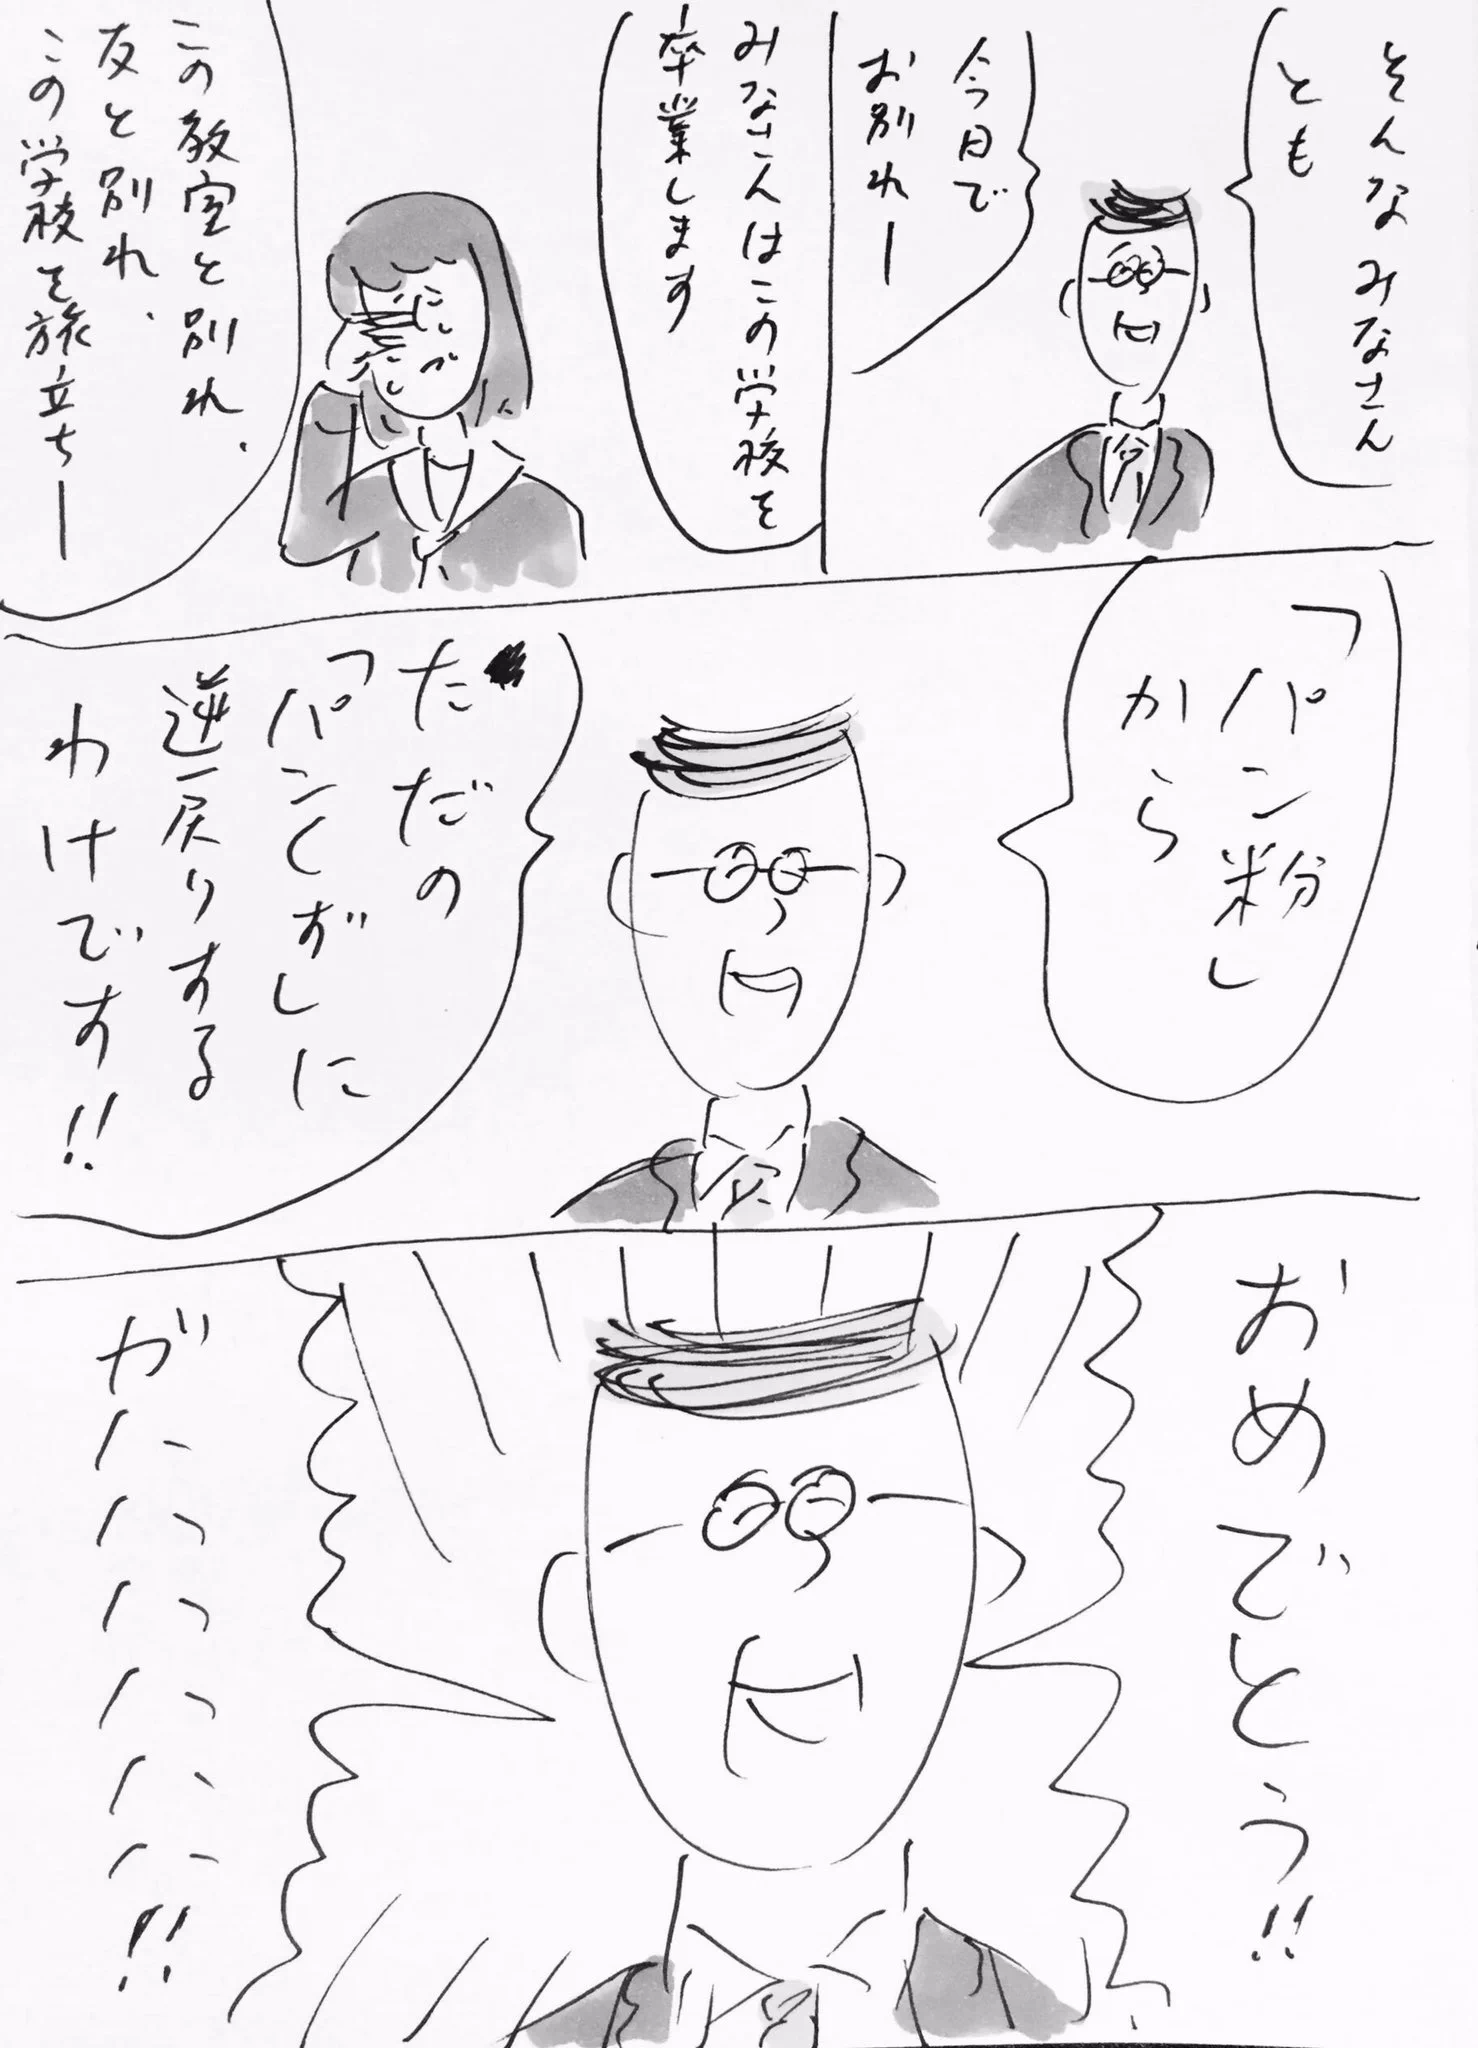 そんなみなさん
とも
今日で
お別れー
みなさんはこの学校を
卒業します
この教室と別れ、
友と別れ、
この学校を旅立ちー
「パン粉」
から
ただの
「パンくず」に
逆戻りする
わけです!!
おめでとう!!
ガハハハハハ!!